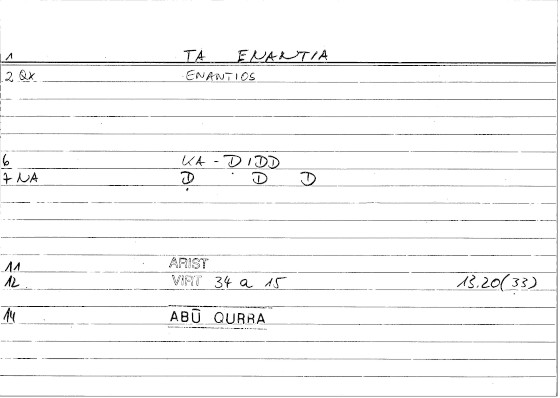 1 TA ENANTIA
2 QX ENANTIOS
6 KA - DIDD
7 NA Ḍ D D
11 ARIST
12 VIRT 34 a 15 13.20(33)
14 ABŪ QURRA